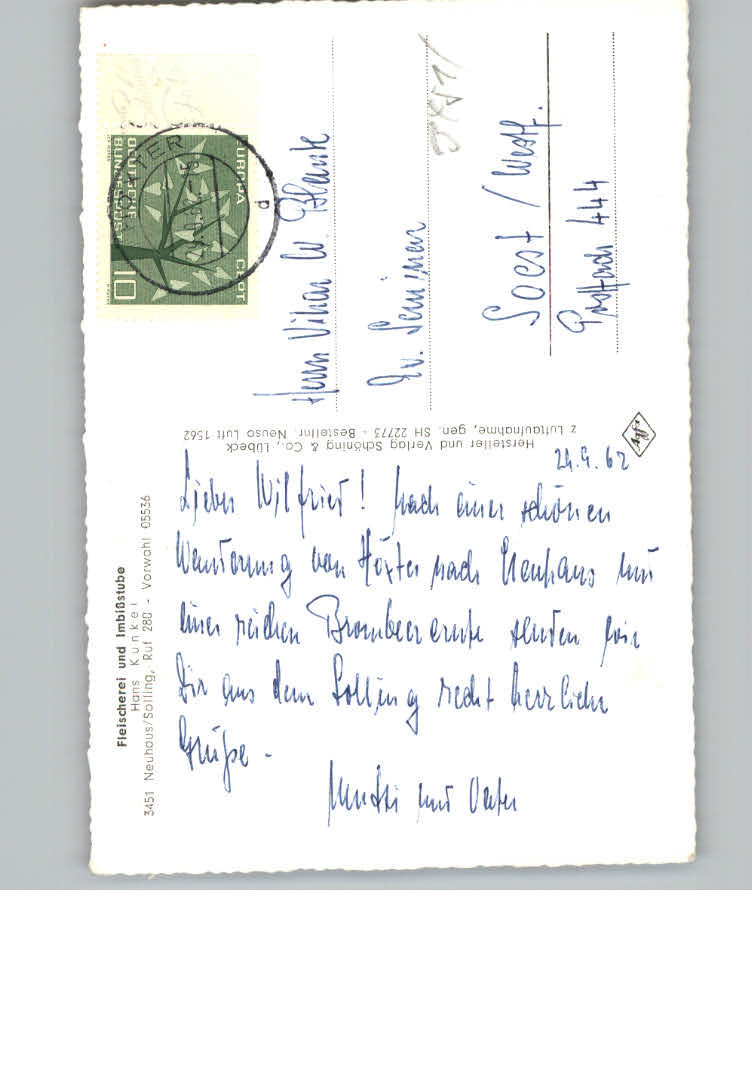 Fleischerei und Imbißstube
Hans Kunkel
3451 Neuhaus/Solling, Ruf 280 - Vorwahl 05536
24.9.62
Lieber Wilfried! Nach einer schönen
Wanderung von Höxter nach Neuhaus und
einer reichen Brombeerernte senden wir
Dir aus dem Solling recht herzliche
Grüße -
Mutti und Vater
Hersteller und Verlag Schöning & Co., Lübeck
z Luftaufnahme, gen. SH 22773 - Bestellnr. Neuso Luft 1562
EUROPA CEPT
DEUTSCHE
BUNDESPOST
10
d
Herrn Vikar W. Blanke
Ev. Seminar
Soest / Westf.
Postfach 444